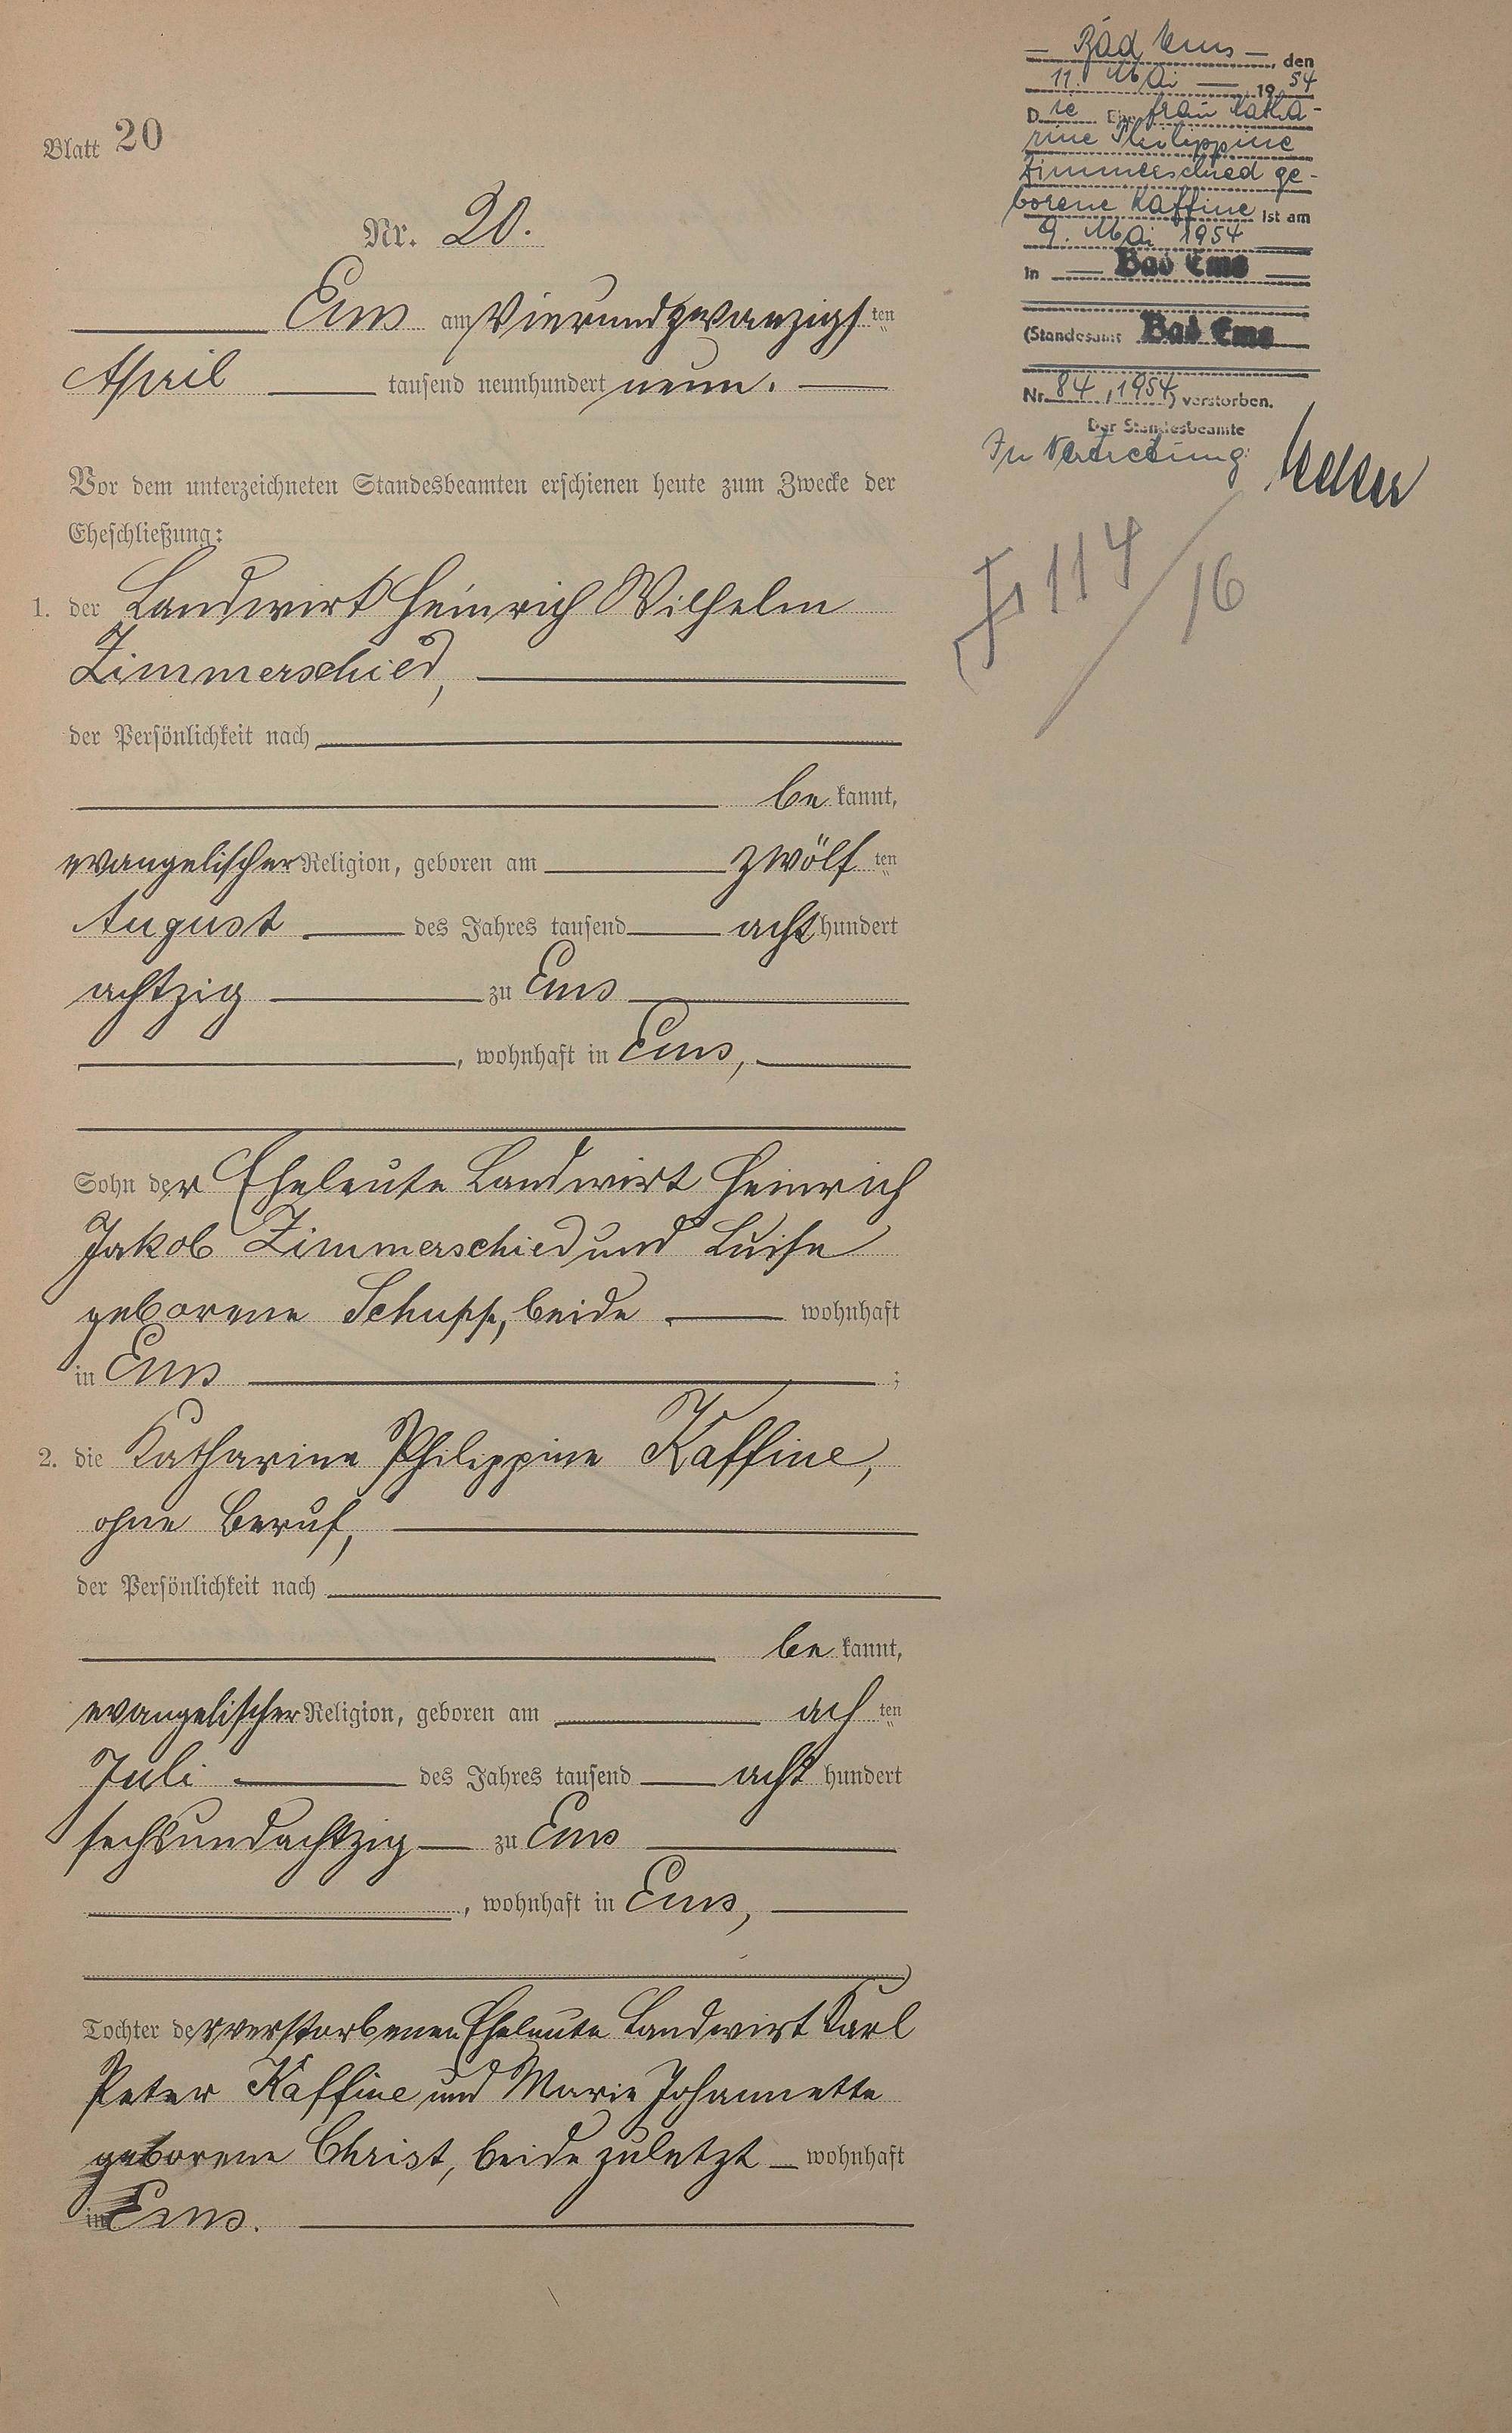 Blatt 20
Nr. 20.
Ems am Vierundzwanzigsten
April tausend neunhundert neun.
Vor dem unterzeichneten Standesbeamten erschienen heute zum Zwecke der
Eheschließung:
1. der Landwirt Heinrich Wilhelm
Zimmerschied,
der Persönlichkeit nach
be kannt,
evangelischer Religion, geboren am zwölf ten
August des Jahres tausend acht hundert
achtzig zu Ems
, wohnhaft in Ems,
Sohn der Eheleute Landwirt Heinrich
Jakob Zimmerschied und Luise
geborene Schupp, beide wohnhaft
in Ems ;
2. die Katharina Philippine Kaffine,
ohne Beruf,
der Persönlichkeit nach
be kannt,
evangelischer Religion, geboren am ach ten
Juli des Jahres tausend acht hundert
sechsundachtzig zu Ems
, wohnhaft in Ems,
Tochter der verstorbenen Eheleute Landwirt Karl
Peter Kaffine und Marie Johannette
geborene Christ, beide zuletzt wohnhaft
in Ems.
Bad Ems, den
11. Mai 1954
Die Ehefrau Katha-
rine Philippine
Zimmerschied ge-
borene Kaffine ist am
9. Mai 1954
in Bad Ems
(Standesamt Bad Ems
Nr. 84/1954) verstorben.
Der Standesbeamte
In Vertretung:
114/16